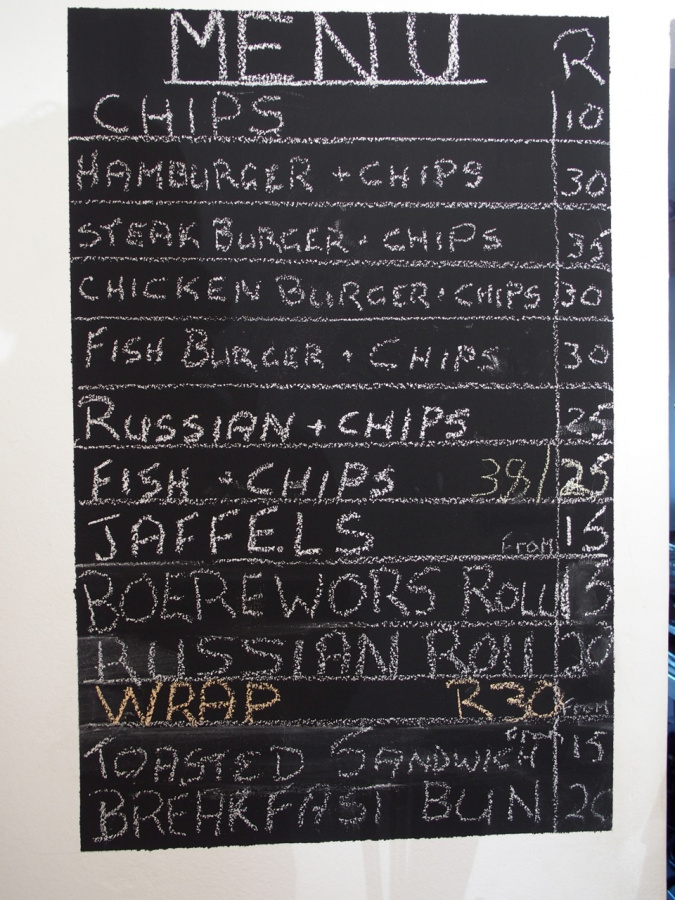 MENU R
CHIPS 10
HAMBURGER + CHIPS 30
STEAK BURGER + CHIPS 35
CHICKEN BURGER + CHIPS 30
FISH BURGER + CHIPS 30
RUSSIAN + CHIPS 25
FISH + CHIPS 38/25
JAFFELS From 15
BOEREWORS ROLL 15
RUSSIAN ROLL 20
WRAP R30 From
TOASTED SANDWICH from 15
BREAKFAST BUN 20